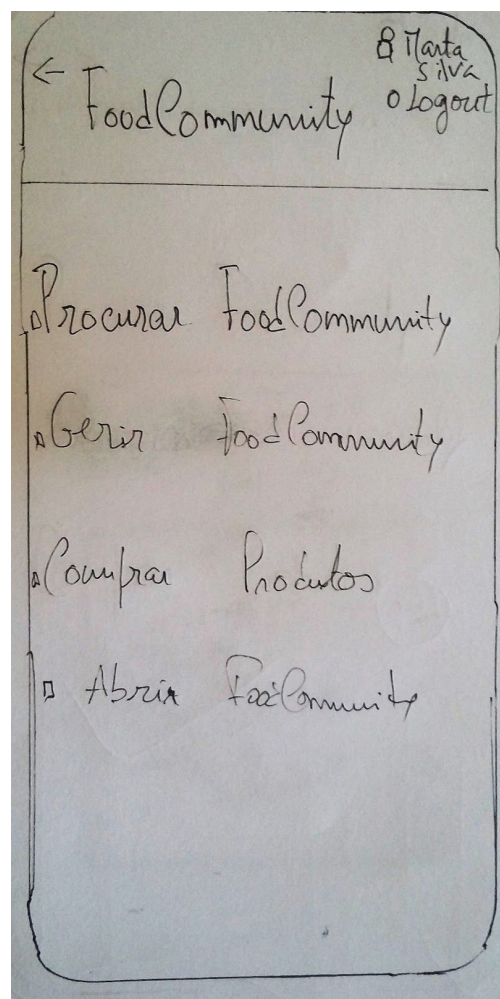 Marta
Silva
FoodCommunity
Logout
Procurar FoodCommunity
Gerir FoodCommunity
Comprar Produtos
Abrir FoodCommunity